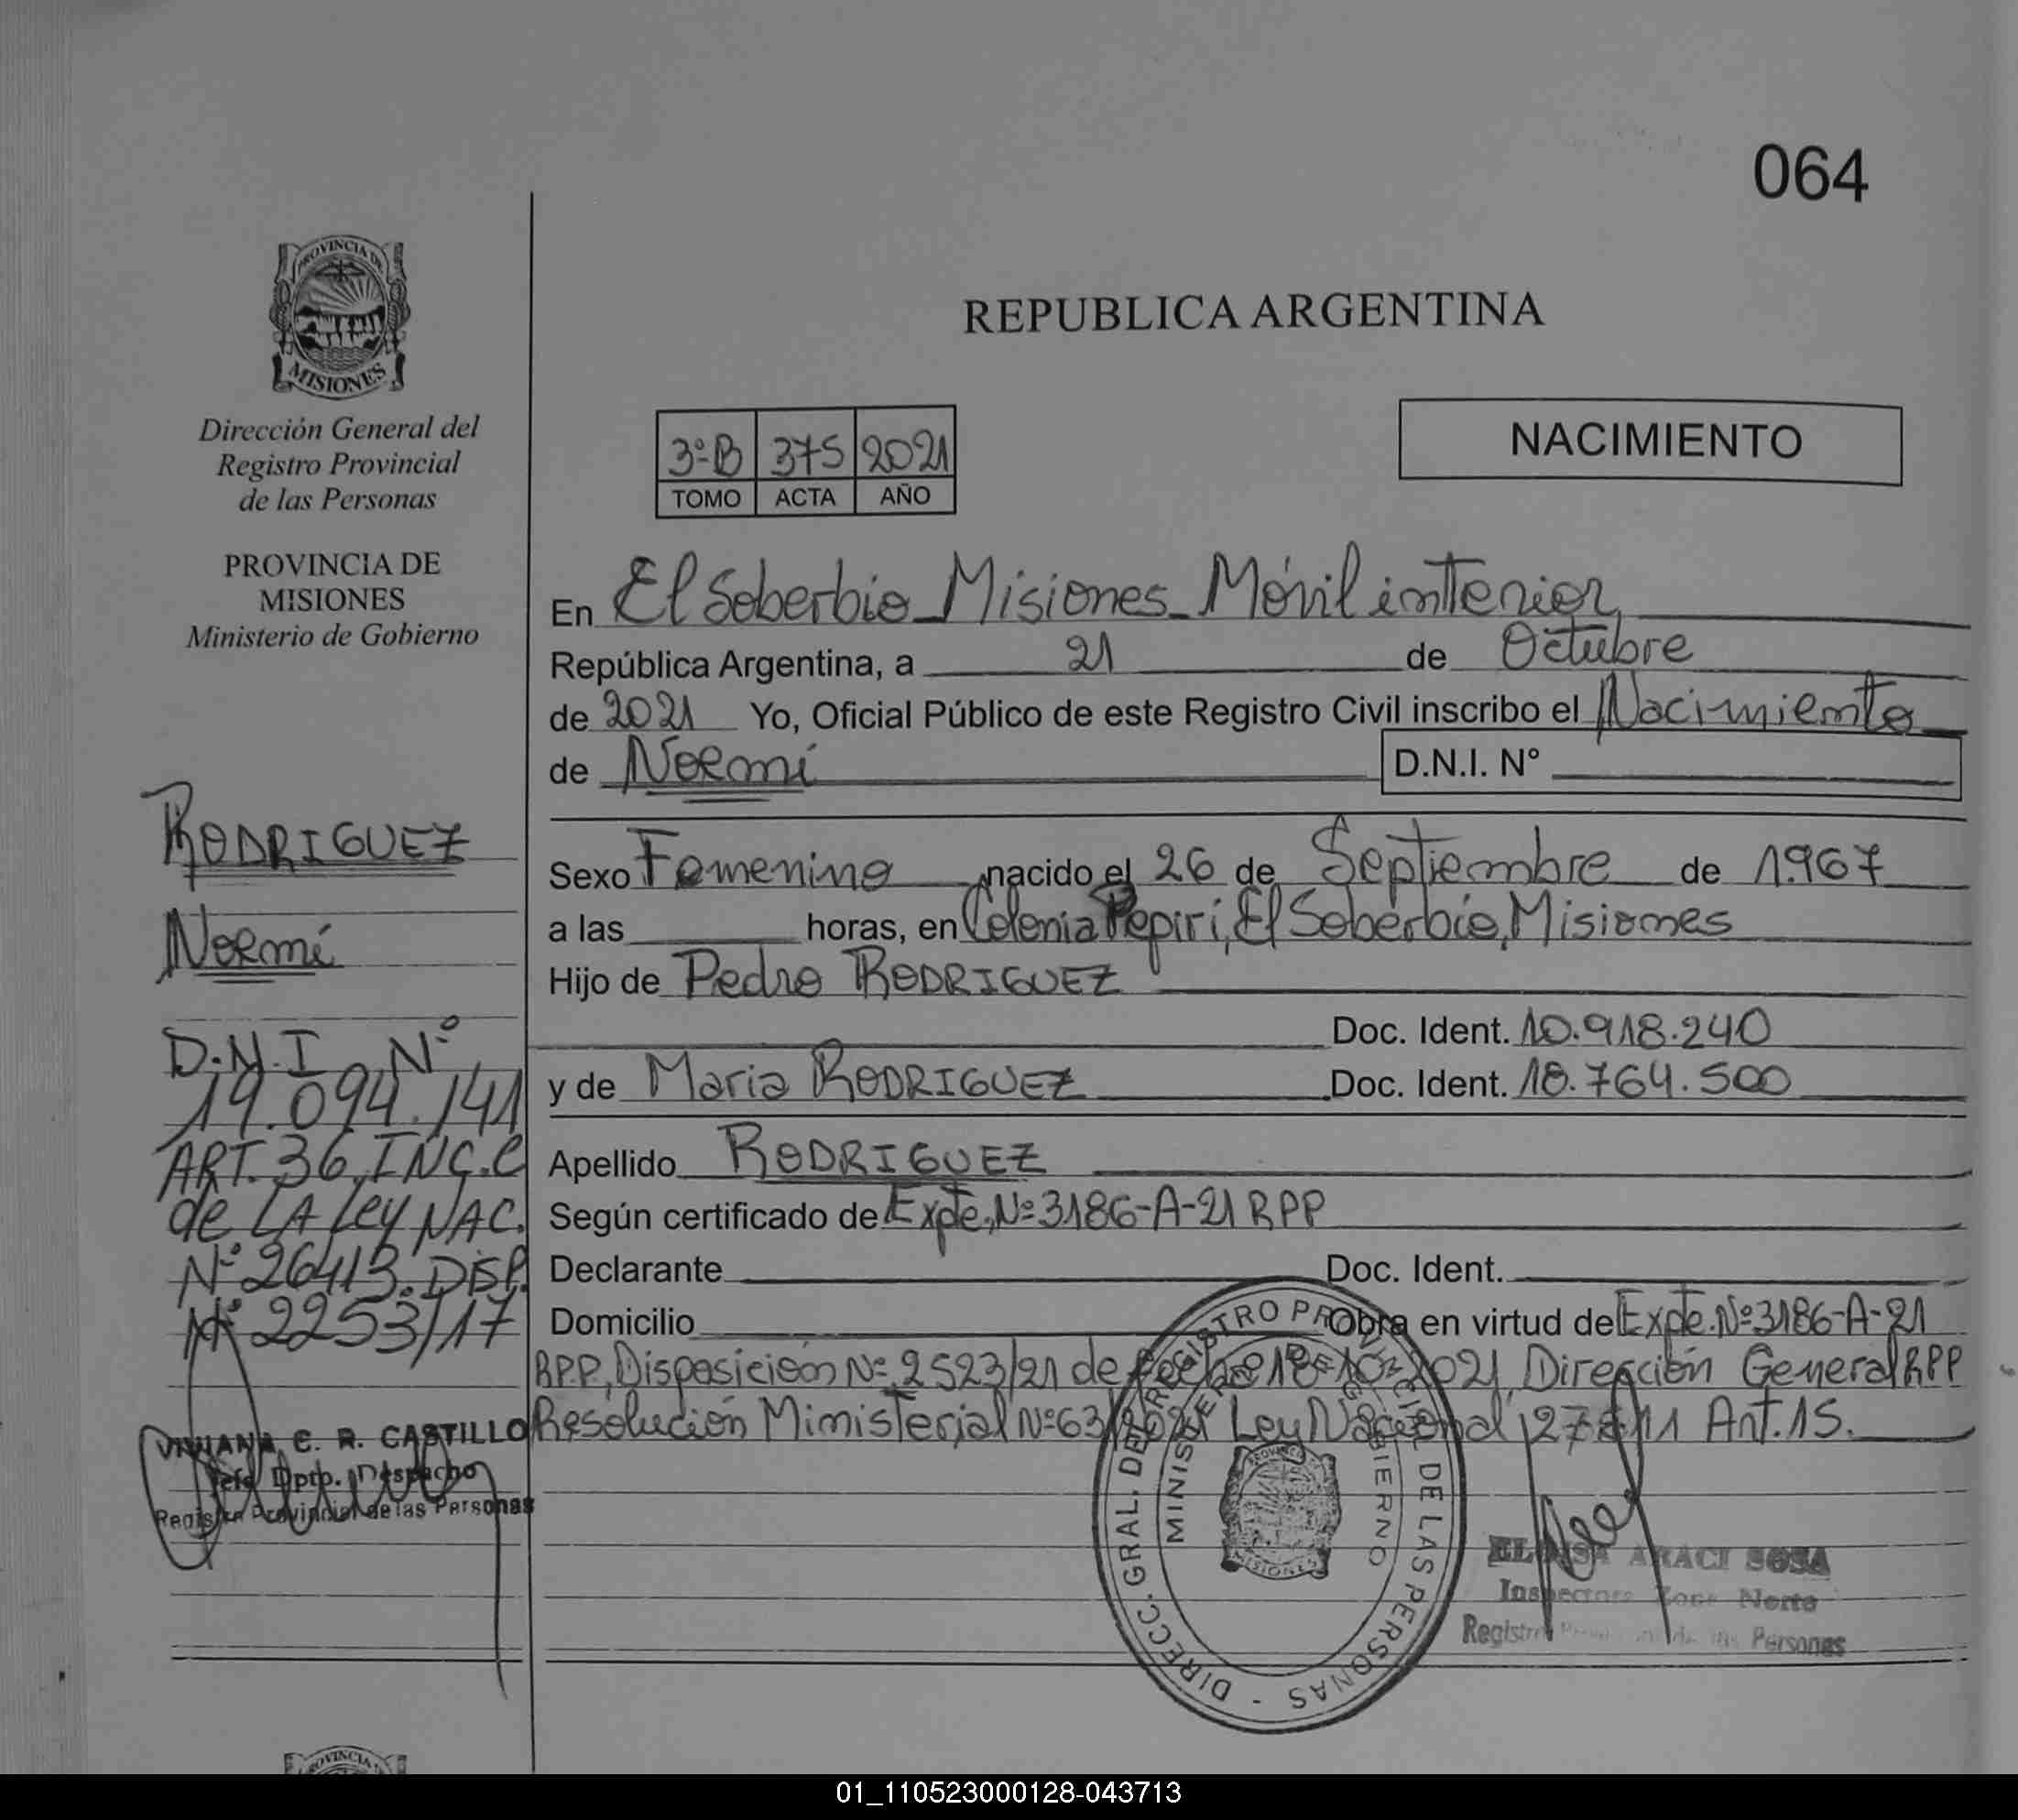 064
PROVINCIA DE
MISIONES
Dirección General del
Registro Provincial
de las Personas
PROVINCIA DE
MISIONES
Ministerio de Gobierno
REPUBLICA ARGENTINA
3º B 375 2021
TOMO ACTA AÑO
NACIMIENTO
En El Soberbio_Misiones_Móvil intterior
República Argentina, a 21 de Octubre
de 2021 Yo, Oficial Público de este Registro Civil inscribo el Nacimiento
de Noemí D.N.I. N°
Sexo Femenino nacido el 26 de Septiembre de 1.967
a las horas, en Colonia Pepirí, El Soberbio, Misiones
Hijo de Pedro RODRIGUEZ
Doc. Ident. 10.918.240
y de Maria RODRIGUEZ Doc. Ident. 18.764.500
Apellido RODRIGUEZ
Según certificado de Expte, Nº 3186-A-21 RPP
Declarante Doc. Ident.
Domicilio Obra en virtud de Expte. Nº 3186-A-21
RPP, Disposición Nº 2523/21 de fecha 18-10-2021, Dirección General RPP
Resolución Ministerial Nº 63/2021 Ley Nacional 27611 Art. 15.
RODRIGUEZ
Noemí
D.N.I Nº
19.094.141
ART. 36, INC. C
de LA Ley NAC.
Nº 26413. DISP.
Nº 2253/17
VIVIANA C. R. CASTILLO
Jefe Dpto. Despacho
Registro Provincial de las Personas
DIRECC. GRAL. DEL REGISTRO PROVINCIAL DE LAS PERSONAS -
MINISTERIO DE GOBIERNO
PROVINCIA
MISIONES
ARACI SOSA
Inspectora Zona Norte
Registro Provincial de las Personas
PROVINCIA
01_110523000128-043713